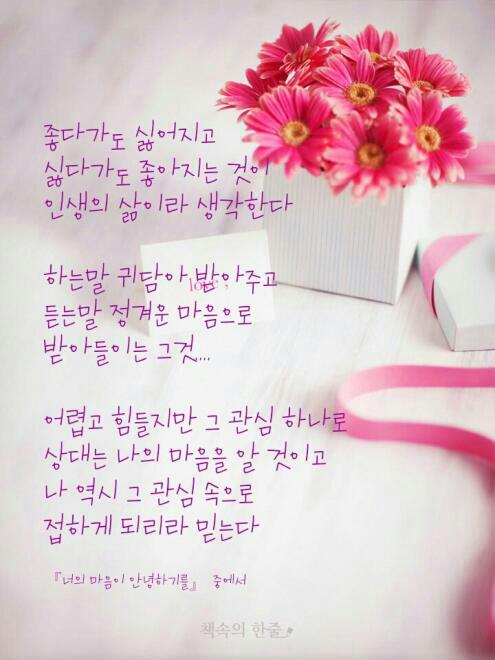 좋다가도 싫어지고
싫다가도 좋아지는 것이
인생의 삶이라 생각한다
하는말 귀담아 받아주고
love ;
듣는말 정겨운 마음으로
받아들이는 그것...
어렵고 힘들지만 그 관심 하나로
상대는 나의 마음을 알 것이고
나 역시 그 관심 속으로
접하게 되리라 믿는다
『너의 마음이 안녕하기를』 중에서
책속의 한줄